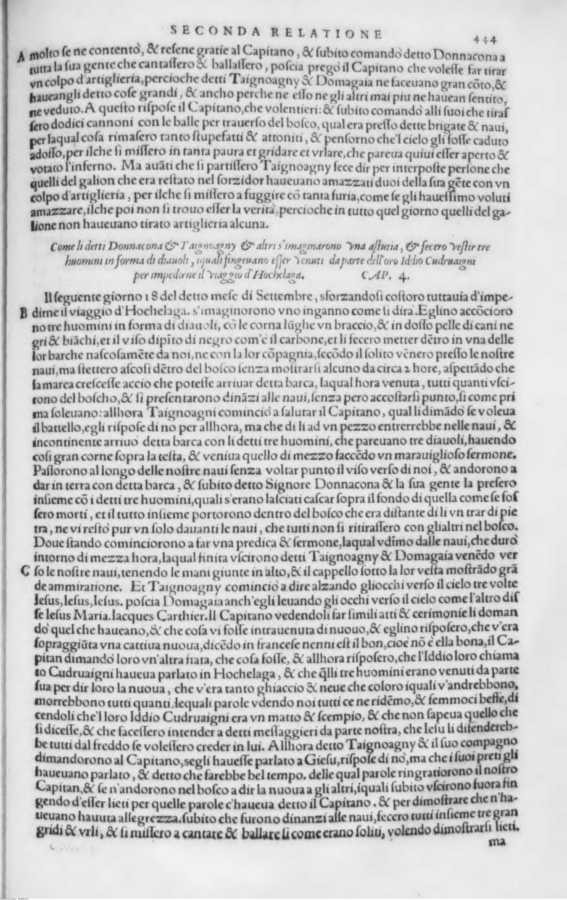 SECONDA RELATIONE 444
A molto se ne contentò, & resene gratie al Capitano, & subito comandò detto Donnacona a
tutta la sua gente che cantassero & ballassero, poscia pregò il Capitano che volesse far tirar
vn colpo d'artiglieria, percioche detti Taignoagny & Domagaia ne faceuano gran cõto, &
haueangli detto cose grandi, & ancho perche ne esso ne gli altri mai piu ne hauean sentito,
ne veduto. A questo rispose il Capitano, che volentieri: & subito comandò alli suoi che tiras
sero dodici cannoni con le balle per trauerso del bosco, qual era presso dette brigate & naui,
per laqual cosa rimasero tanto stupefatti & attoniti, & pensorno che'l cielo gli fosse caduto
adosso, per ilche si missero in tanta paura et gridare et vrlare, che pareua quiui esser aperto &
votato l'inferno. Ma auãti che si partissero Taignoagny fece dir per interposte persone che
quelli del galion che era restato nel forzidor haueuano amazzati duoi della sua gẽte con vn
colpo d'artiglieria, per ilche si missero a fuggire cõ tanta furia, come se gli hauessimo voluti
amazzare, ilche poi non si trouo esser la verita, percioche in tutto quel giorno quelli del ga-
lione non haueuano tirato artiglieria alcuna.
Come li detti Donnacona & Taignoagny & altri s'imaginarono vna astutia, & fecero vestir tre
huomini in forma di diauoli, iquali fingeuano esser venuti da parte dell'oro Iddio Cudruaigni
per impedirne il viaggio d'Hochelaga. CAP. 4.
Il seguente giorno 18 del detto mese di Settembre, sforzandosi costoro tuttauia d'impe-
B dirne il viaggio d'Hochelaga. s'imaginorono vno inganno come li dira. Eglino accõcioro
no tre huomini in forma di diauoli, cõ le corna lũghe vn braccio, & in dosso pelle di cani ne
gri & biãchi, et il viso dipito di negro com'è il carbone, et li fecero metter dẽtro in vna delle
lor barche nascosamẽte da noi, ne con la lor cõpagnia, secõdo il solito vẽnero presso le nostre
naui, ma stettero ascosi dẽtro del bosco senza mostrarsi alcuno da circa 2 hore, aspettãdo che
la marea crescesse accio che potesse arriuar detta barca, laqual hora venuta, tutti quanti vsci-
rono del boscho, & si presentarono dinãzi alle naui, senza pero accostarsi punto, si come pri
ma soleuano: allhora Taignoagni cominciò a salutar il Capitano, qual li dimãdò se voleua
il battello, egli rispose di no per allhora, ma che di li ad vn pezzo entrerrebbe nelle naui, &
incontinente arriuo detta barca con li detti tre huomini, che pareuano tre diauoli, hauendo
cosi gran corne sopra la testa, & veniua quello di mezzo faccẽdo vn marauiglioso sermone.
Passorono al longo delle nostre naui senza voltar punto il viso verso di noi, & andorono a
dar in terra con detta barca, & subito detto Signore Donnacona & la sua gente la presero
insieme cõ i detti tre huomini, quali s'erano lasciati cascar sopra il fondo di quella come se fos
sero morti, et il tutto insieme portorono dentro del bosco che era distante di li vn trar di pie
tra, ne vi restò pur vn solo dauanti le naui, che tutti non si ritirassero con glialtri nel bosco.
Doue stando cominciorono a far vna predica & sermone, laqual vdimo dalle naui, che durò
intorno di mezza hora, laqual finita vscirono detti Taignoagny & Domagaia venẽdo ver
C so le nostre naui, tenendo le mani giunte in alto, & il cappello sotto la lor vesta mostrãdo grã
de ammiratione. Et Taignoagny cominciò a dire alzando gliocchi verso il cielo tre volte
Iesus, Iesus, Iesus. poscia Domagaia anch'egli leuando gli occhi verso il cielo come l'altro dis
se Iesus Maria. Iacques Carthier. Il Capitano vedendoli far simili atti & cerimonie li doman
dò quel che haueano, & che cosa vi fosse intrauenuta di nuouo, & eglino risposero, che v'era
sopraggiũta vna cattiua nuoua, dicẽdo in francese nenni est il bon, cioè nõ è ella bona, il Ca-
pitan dimandò loro vn'altra fiata, che cosa fosse, & allhora risposero, che l'Iddio loro chiama
to Cudruaigni haueua parlato in Hochelaga, & che q̃lli tre huomini erano venuti da parte
sua per dir loro la nuoua, che v'era tanto ghiaccio & neue che coloro iquali v'andrebbono,
morrebbono tutti quanti. lequali parole vdendo noi tutti ce ne ridẽmo, & femmoci beffe, di
cendoli che'l loro Iddio Cudruaigni era vn matto & scempio, & che non sapeua quello che
si dicesse, & che facessero intender a detti messaggieri da parte nostra, che Iesu li difendereb-
be tutti dal freddo se volessero creder in lui. Allhora detto Taignoagny & il suo compagno
dimandorono al Capitano, segli hauesse parlato a Giesu, rispose di nò, ma che i suoi preti gli
haueuano parlato, & detto che sarebbe bel tempo. delle qual parole ringratiorono il nostro
Capitan, & se n'andorono nel bosco a dir la nuoua a gli altri, iquali subito vscirono fuora fin
gendo d'esser lieti per quelle parole c'haueua detto il Capitano. & per dimostrare che n'ha-
ueuano hauuta allegrezza. subito che furono dinanzi alle naui, fecero tutti insieme tre gran
gridi & vrli, & si missero a cantare & ballare si come erano soliti, volendo dimostrarsi lieti.
ma